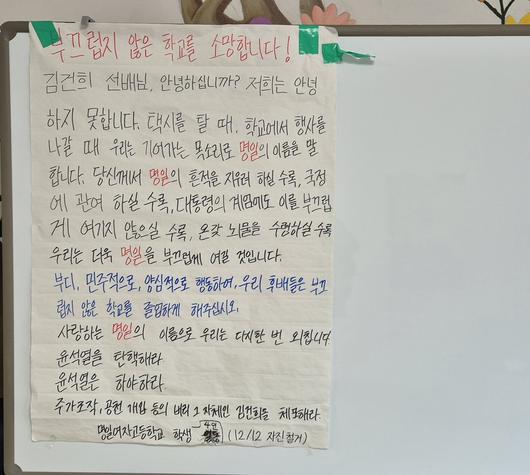 부끄럽지 않은 학교를 소망합니다!
김건희 선배님, 안녕하십니까? 저희는 안녕
하지 못합니다. 택시를 탈 때, 학교에서 행사를
나갈 때 우리는 기어가는 목소리로 명일의 이름을 말
합니다. 당신께서 명일의 흔적을 지우려 하실 수록, 국정
에 관여 하실 수록, 대통령의 계엄에도 이를 부끄럽
게 여기지 않으실 수록, 온갖 뇌물을 수령하실 수록
우리는 더욱 명일을 부끄럽게 여길 것입니다.
부디, 민주적으로, 양심적으로 행동하여, 우리 후배들은 부끄
럽지 않은 학교를 졸업하게 해주십시오.
사랑하는 명일의 이름으로 우리는 다시한 번 외칩니다
윤석열을 탄핵해라
윤석열은 하야하라.
주가조작, 공천 개입 등의 비리 그 자체인 김건희를 체포해라.
명일여자고등학교 학생 (12/12 자진철거)